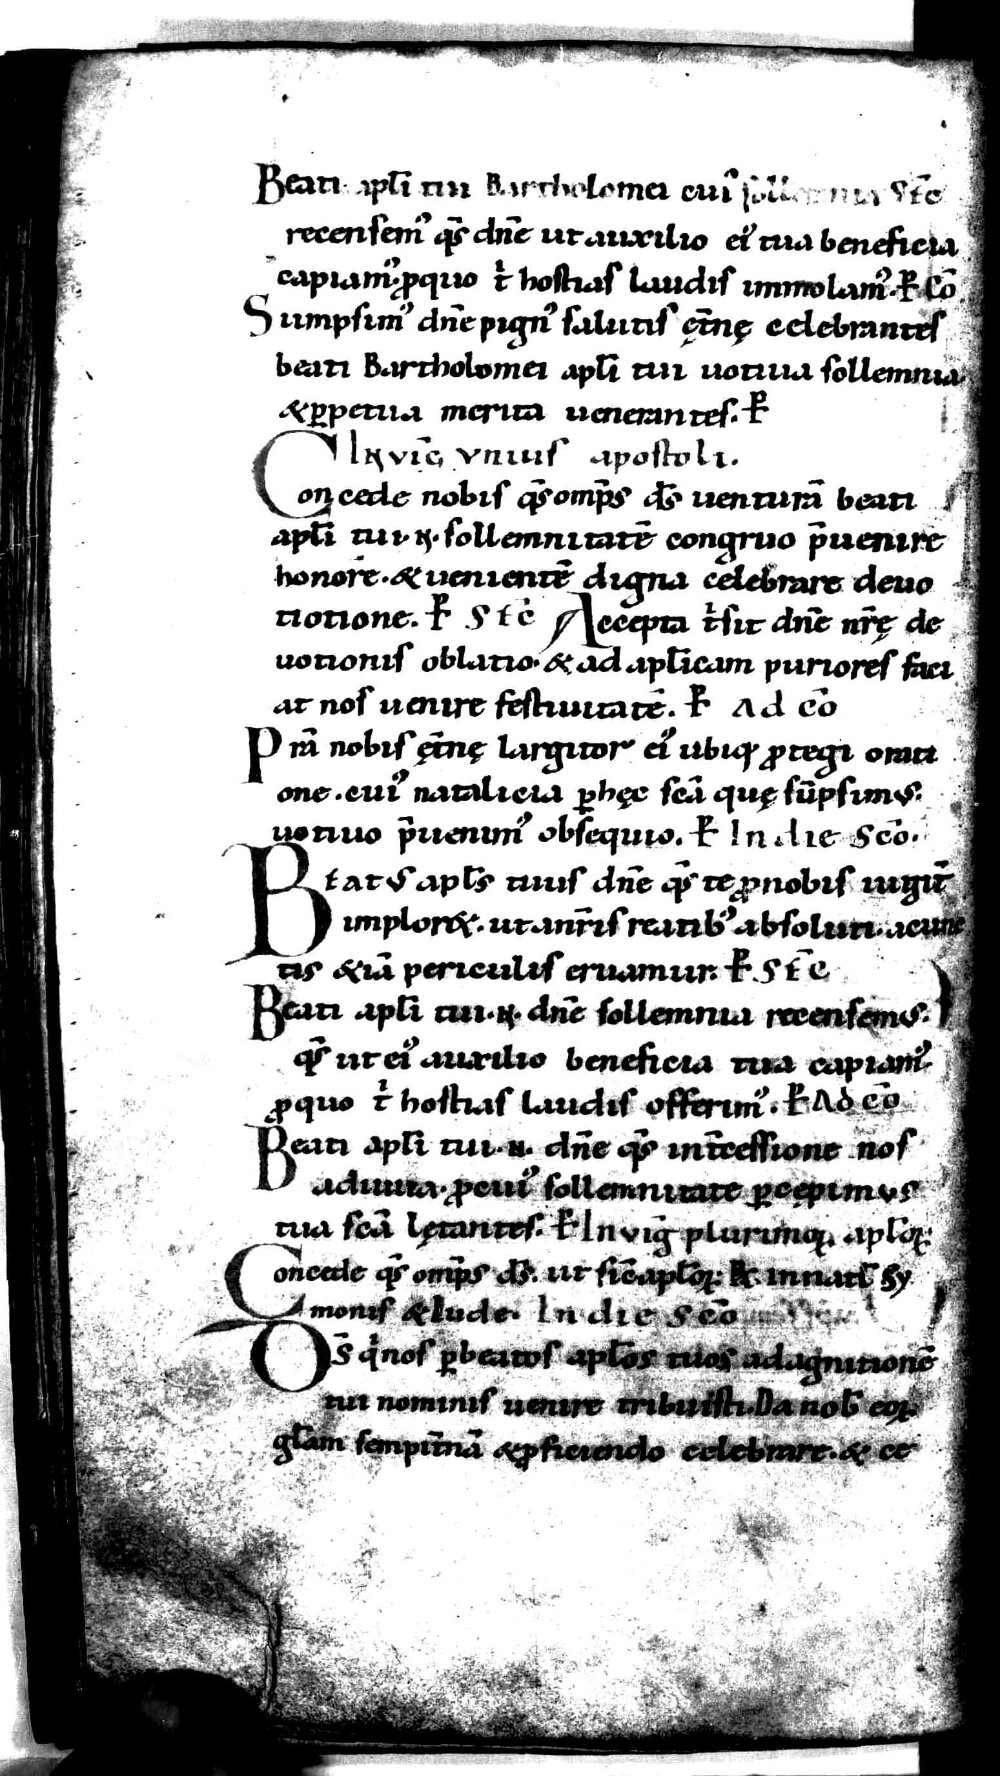 Beati apłi tui Bartholomei cui᷒ sollemnia STC̄
recensem᷒ qs̄ dn̄e ut auxilio ei᷒ tua beneficia
capiam᷒. ꝓquo t͛ hostias laudis immolam᷒. P̱ CŌ
Sumpsim᷒ dn̄e pign᷒ salutis ęt̄nę celebrantes
beati Bartholomei apłi tui uotiua sollemnia.
&ꝑpetua merita uenerantes. P̱
IN VIḠ VNIUS APOSTOLI.
Concede nobis qs̄ omp̄s ds̄ uenturā beati
apłi tui .N. sollemnitatē congruo p̄uenire
honore. & uenientē digna celebrare deuo
tiotione. P̱ STC̄ Accepta t͛ sit dn̄e nr̄ę de
uotionis oblatio. & ad apłicam puriores faci
at nos uenire festiuitatē. P̱ AD CŌ
Prā nobis ęt̄nę largitor ei᷒ ubiq; ꝓtegi orati
one. cui᷒ natalicia ꝑhęc scā quę sūpsimus.
uotiuo p̄uenim᷒ obsequio. P̱ IN DIE SCŌ.
BEATUS apłs tuus dn̄e qs̄ te ꝓnobis iugit̄
implor&. ut anr̄is reatib᷒ absoluti. acunc
tis &iā periculis eruamur. P̱ STC̄
Beati apłi tui .N. dn̄e sollemnia recensemus.
qs̄ ut ei᷒ auxilio beneficia tua capiam᷒.
ꝓquo t͛ hostias laudis offerim᷒. P̱ AD CŌ
Beati apłi tui .N. dn̄e qs̄ int̄cessione nos
adiuua. ꝓcui᷒ sollemnitate ꝑcępimus
tua scā lętantes. P̱ IN VIḠ plurimoꝝ aplōꝝ.
Concede qs̄ omp̄s ds̄. ut sic̄ aplōꝝ. R&. in nat̄ Sy
monis & Iude. IN DIE SCŌ
DS̄ q͛ nos ꝑbeatos aplōs tuos ad agnitionē
tui nominis uenire tribuisti. Da nob̄ eoꝝ
gl̄am sempit̄nā &ꝓficiendo celebrare. & ce